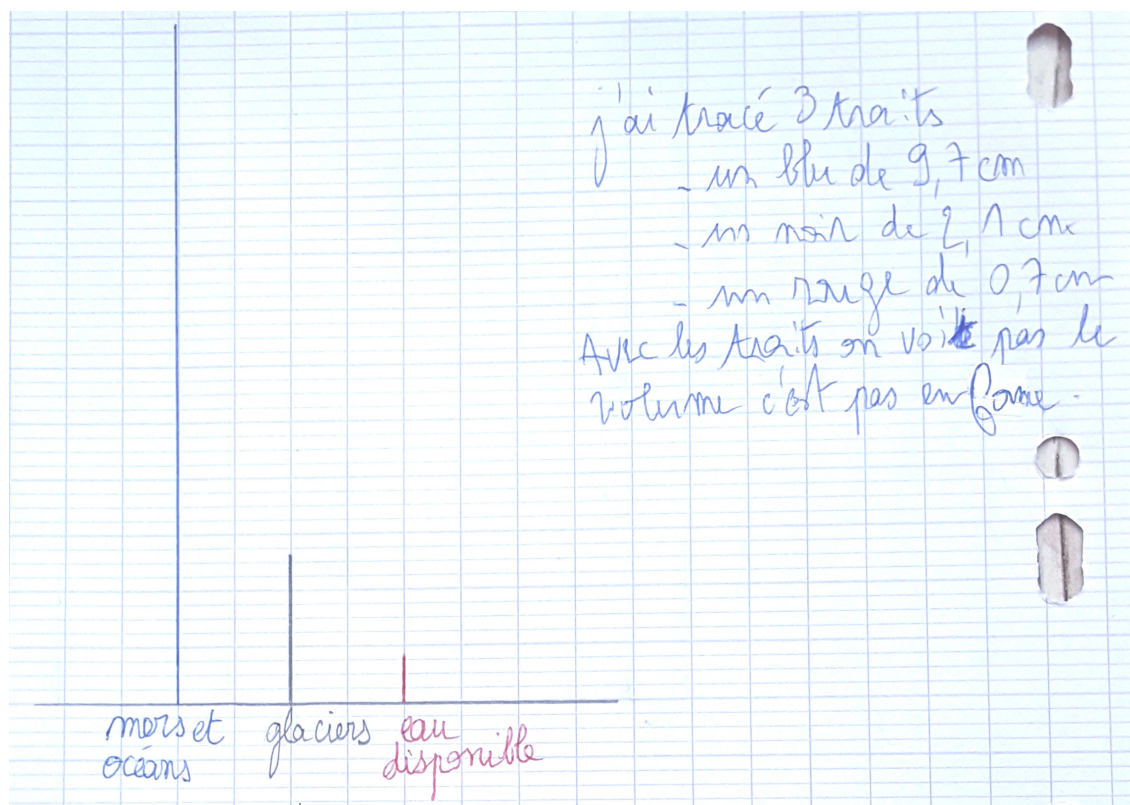 j'ai tracé 3 traits
- un bleu de 9,7 cm
- un noir de 2,1 cm
- un rouge de 0,7 cm
Avec les traits on voit pas le
volume c'est pas en forme.
mers et
océans
glaciers
eau
disponible